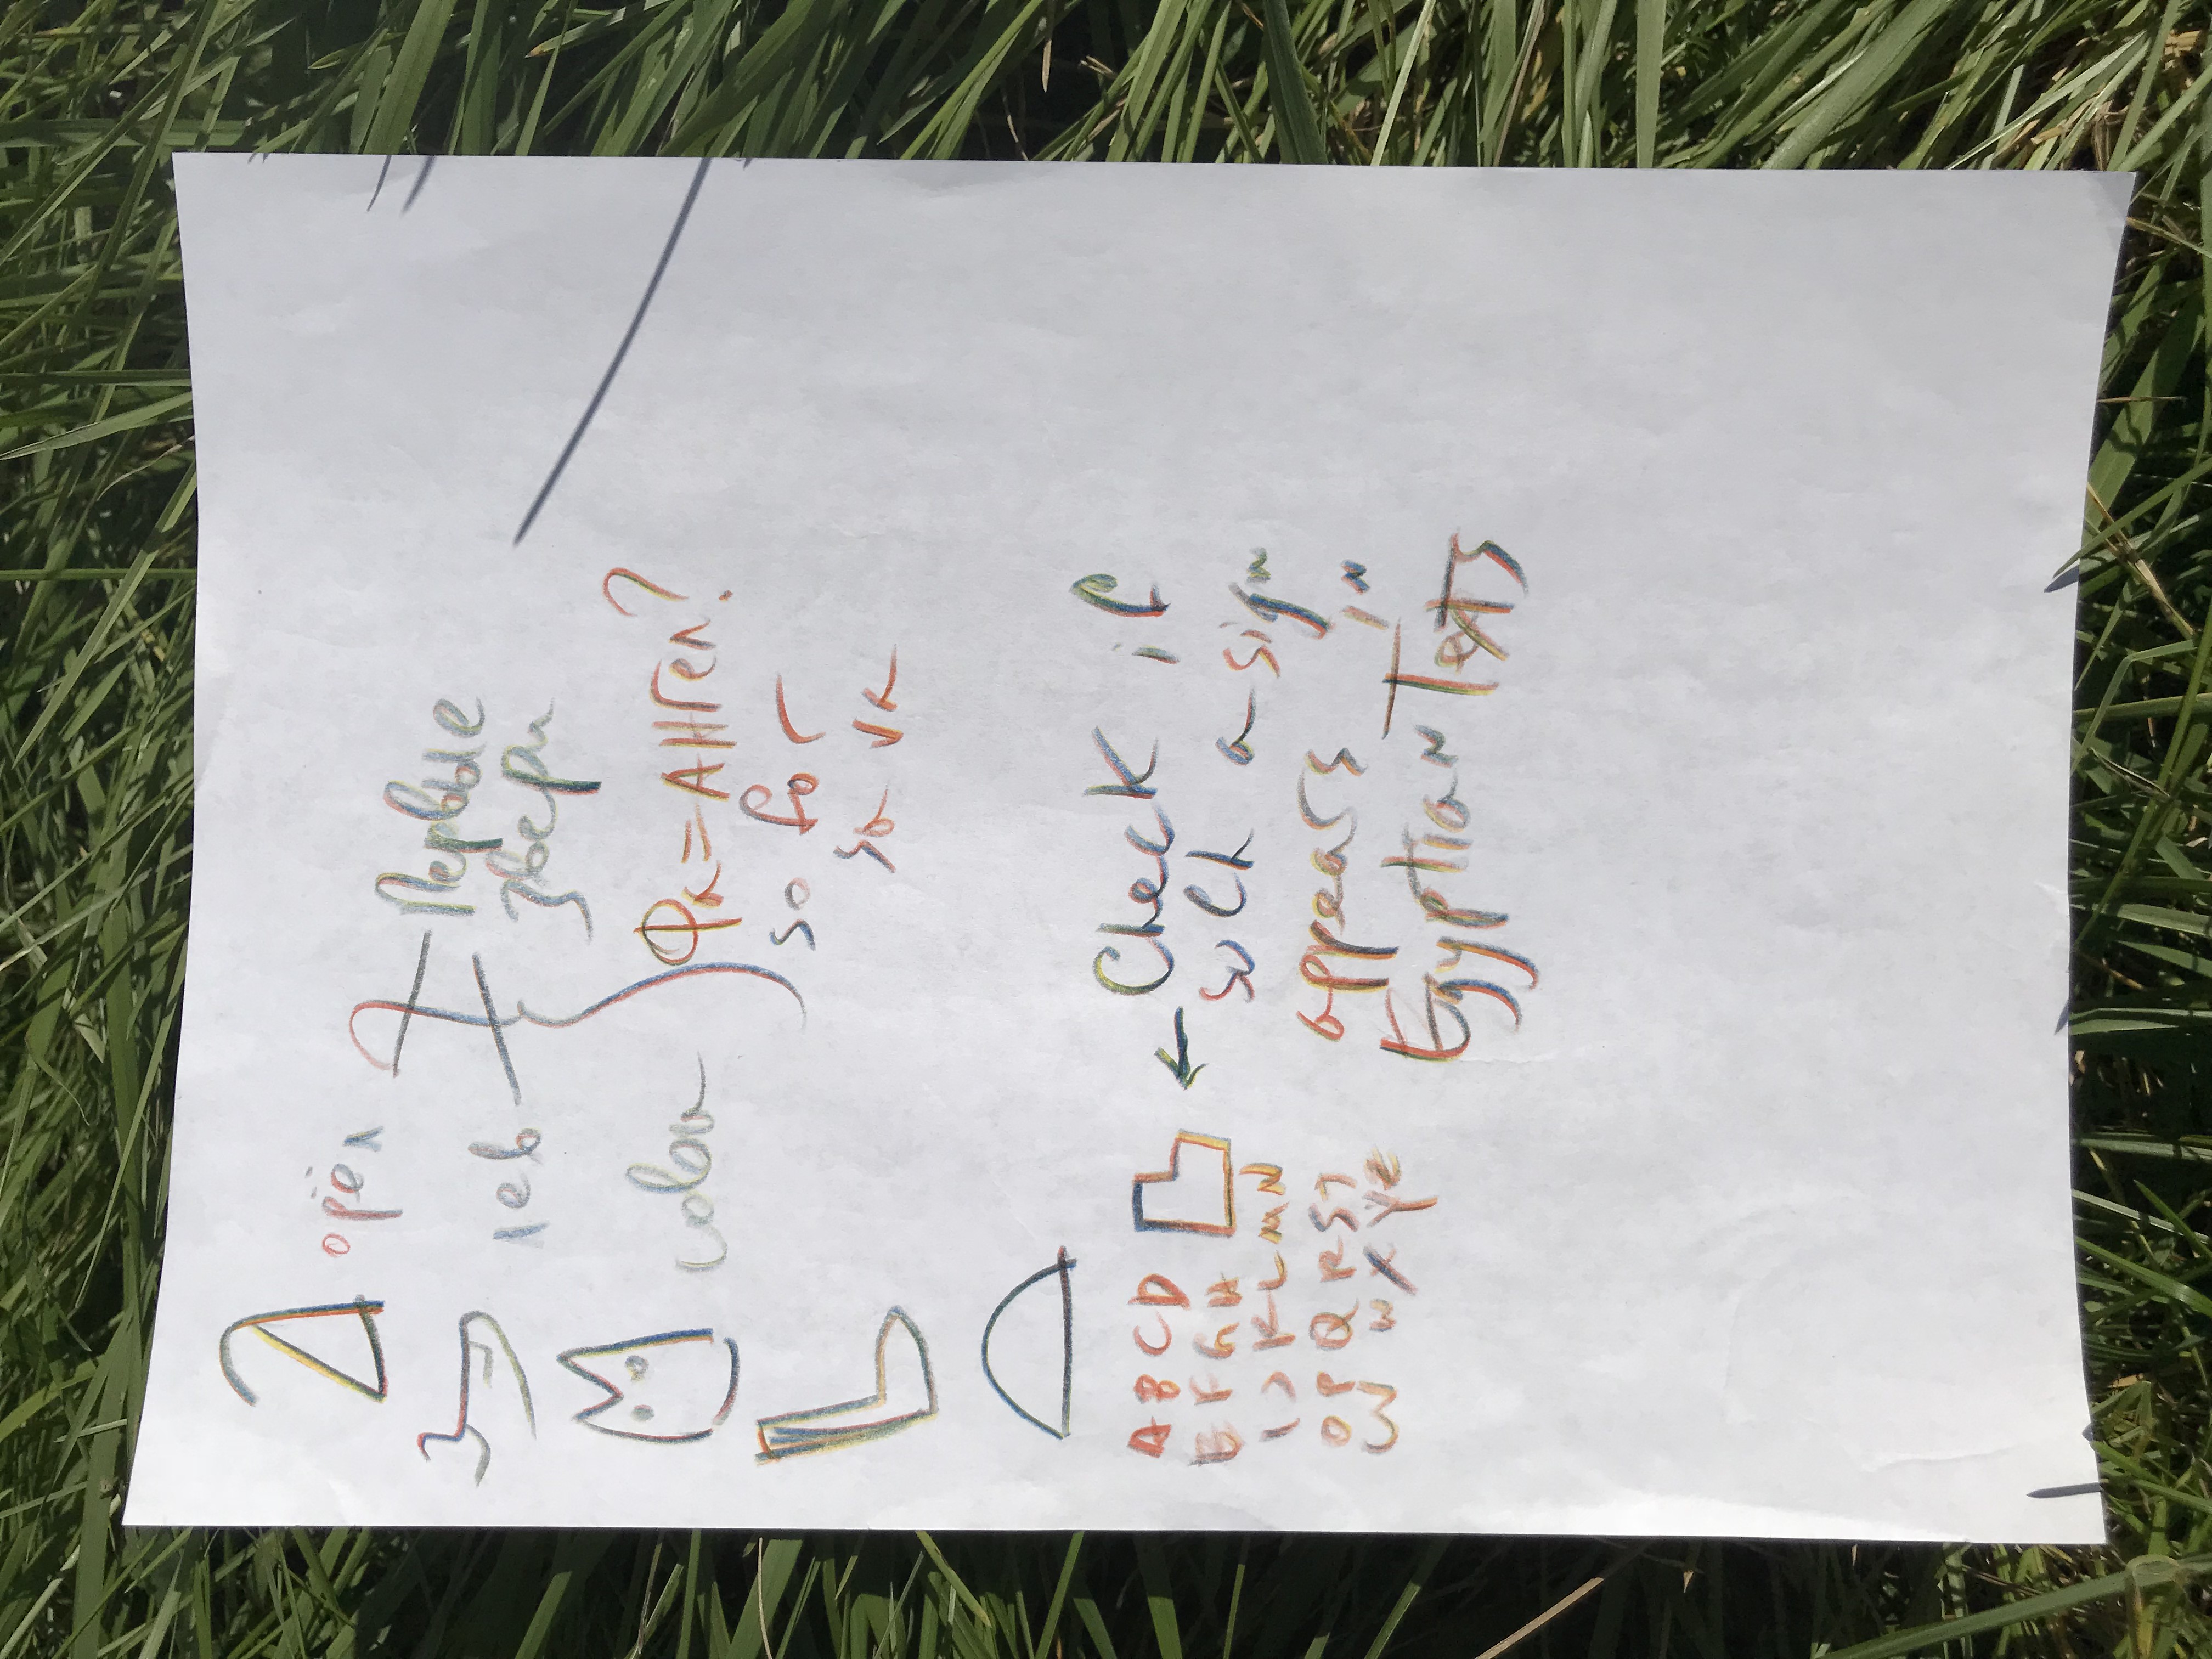 орёл
лев
сова
Первые
звери
Фа = АНГел?
so for
sa va
A B C D
E F G H
I J K L M N
O P Q R S T
W X Y Z
Check if
such a sign
appears in
Egyptian Texts